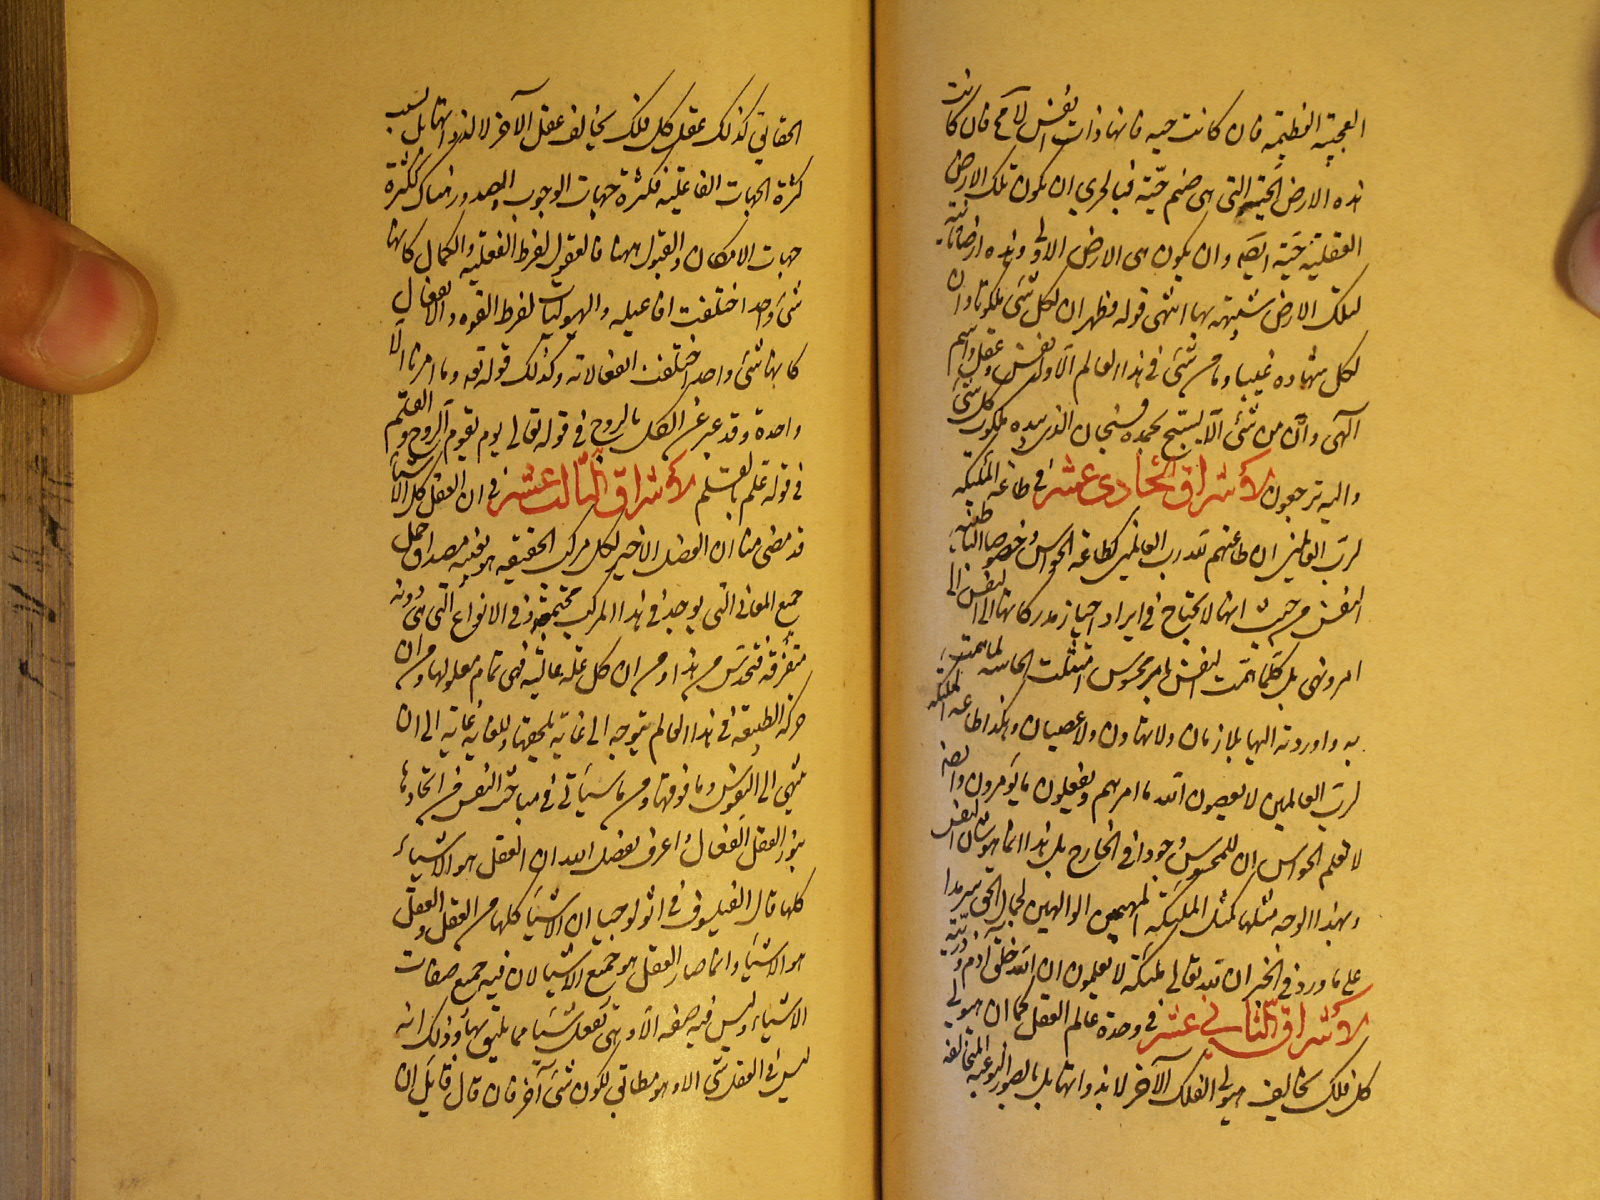 العجيبة العظيمة فان كانت حية فانها ذات نفس لا محة فان كانت
هذه الارض الحسية التى هى صنم حية فبالحرى ان يكون تلك الارض
العقلية حية ايضا وان يكون هى الارض الاولى وهذه ارضا ثانية
لتلك الارض شبيهة بها انتهى قوله فظهر ان لكل شئ ملكوتا وان
لكل شهادة غيبا وما من شئ فى هذا العالم الا وله نفس وعقل واسم
آلهى وان من شئ الا يسبح بحمده فسبحان الذى بيده ملكوت كل شئ
واليه ترجعون الاشراق الحادى عشر فى طاعة الملئكة
لرب العالمين ان طاعتهم لله رب العالمين كطاعة الحواس وخصوصا الباطنة
النفس من حيث انها لا يحتاج فى ايراد اخبار مدركاتها الى النفس الى
امر ونهى بل كلما همت النفس بامر محسوس امتثلت الحاسة لما همت
به واوردته اليها بلا زمان ولا تهاون ولا عصيان وهكذا طاعة الملئكة
لرب العالمين لا يعصون الله ما امرهم ويفعلون ما يؤمرون وايضا
لا تعلم الحواس ان للمحسوس وجودا فى الخارج بل هذا انما هو شان النفس
وبهذا الوجه مثلها كمثل الملئكة المهيمين الوالهين لجمال الحق سرمدا
على ما ورد فى الخبر ان لله تعالى ملئكة لا يعلمون ان الله خلق آدم وذريته
الاشراق الثانى عشر فى وحدة عالم العقل كما ان هيولى
كل فلك يخالف هيولى الفلك الآخر لا بذواتها بل بالصور النوعية المتخالفة
الحقايق كذلك عقل كل فلك يخالف عقل الآخر لا لذواتها بل بسبب
كثرة الجهات الفاعلية فكثرة جهات الوجوب والصدور هناك ككثرة
جهات الامكان والقبول ههنا فالعقول لفرط الفعلية والكمال كانها
شئ واحد اختلفت افاعيله والهيوليات لفرط القوة والانفعال
كانها شئ واحد اختلفت انفعالاته وكذلك قوله تعه وما امرنا الا
واحدة وقد عبر عن الكل بالروح فى قوله تعالى يوم يقوم الروح وبالقلم
فى قوله علم بالقلم الاشراق الثالث عشر فى ان العقل كل الاشياء
قد مضى منا ان الفصل الاخير لكل مركب الحقيقة هو بعينه مصداق حمل
جميع المعانى التى يوجد فى هذا المركب مجتمعة وفى الانواع التى هى دونه
متفرقة فتحدس من هذا ومن ان كل علة عالية فهى تمام معلولها ومن ان
حركة الطبيعة فى هذا العالم يتوجه الى غاية يلحقها وللغاية غاية الى ان
ينتهى الى النفوس وما فوقها ومن ما سياتى فى مباحث النفس من اتحادها
بنور العقل الفعال واعرف بفضل الله ان العقل هو الاشياء
كلها قال الفيلسوف فى اثولوجيا ان الاشياء كلها من العقل والعقل
هو الاشياء وانما صار العقل هو جميع الاشياء لان فيه جميع صفات
الاشياء وليس فيه صفة الا وهى تفعل شيئا مما يليق بها وذلك انه
ليس فى العقل شئ الا وهو مطابق لكون شئ آخر فان قال قايل ان